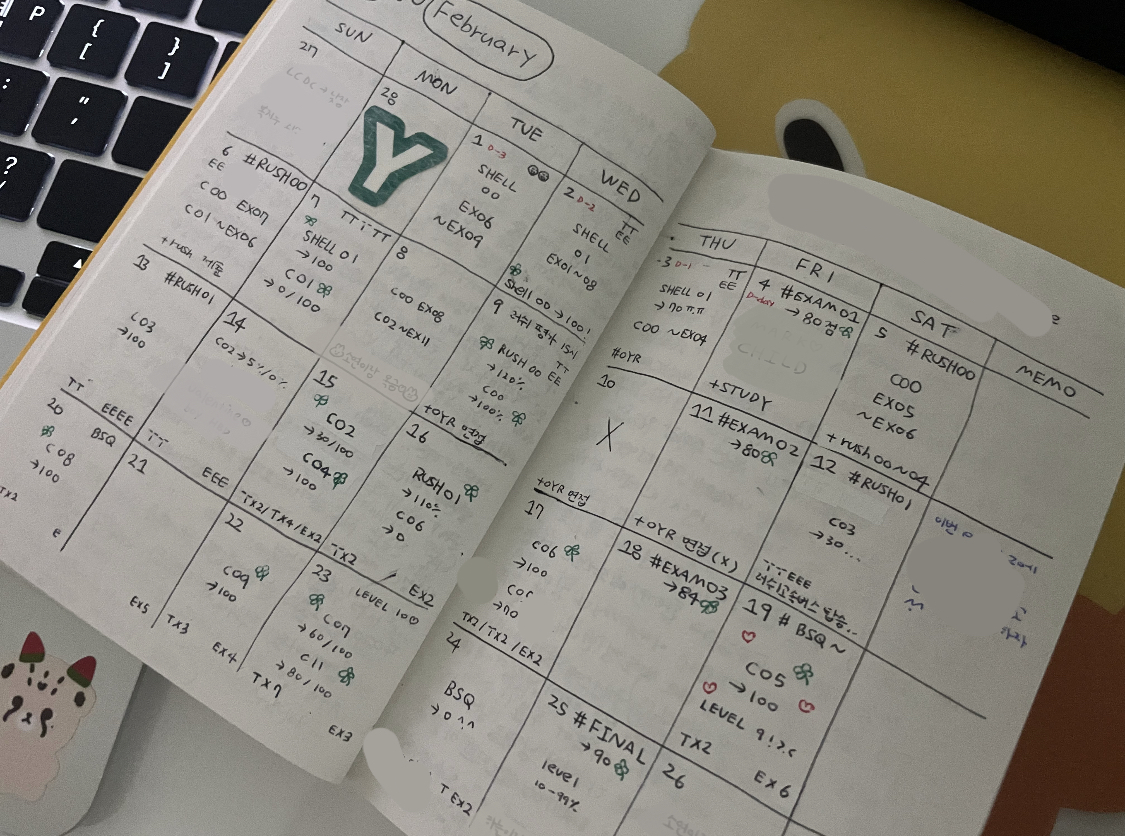 P
{
[
}
]
:
"
,
?
/
February
SUN
MON
TUE
WED
27
28
Y
1 D-3
SHELL
00
EX06
~EX09
2 D-2
TT
EE
SHELL
01
EX01~08
Shell 00 →100!
6 #RUSH00
EE
C00 EX07
C01 ~EX06
+rush
7
SHELL 01
→100
C01
→0/100
8
C00 EX08
C02~EX11
9
TT
RUSH 00 EE
→120%
C00
→100%
+OYR 면접
13 #RUSH01
C03
→100
TT
EEEE
14
C02→
TT
EEE
15
C02
→30/100
C04
→100
TX2/TX4/EX2
16
RUSH01
→110%
C06
→0
TX2
EX2
20
BSQ
C08
→100
TX2
E
21
EX5
22
C09
→100
TX3
EX4
23
LEVEL 10
C07
→60/100
C11
→80/100
TX7
EX3
THU
FRI
SAT
MEMO
3 D-1
TT
EE
SHELL 01
→70 ㅠㅠ
C00 ~EX04
#OYR
4 #EXAM01
D-day
→80점
+STUDY
5 #RUSH00
C00
EX05
~EX06
+rush00~04
10
X
+OYR 면접
11 #EXAM02
→80
+OYR 면접(X)
12 #RUSH01
C03
→30...
TTEEE
17
C06
→100
→70
TX2/TX2/EX2
18 #EXAM03
→84
19 #BSQ~
C05
→100
LEVEL 9!
TX2
EX6
24
BSQ
→0 ^^
T EX2
25 #FINAL
→90
level
10-99%
26